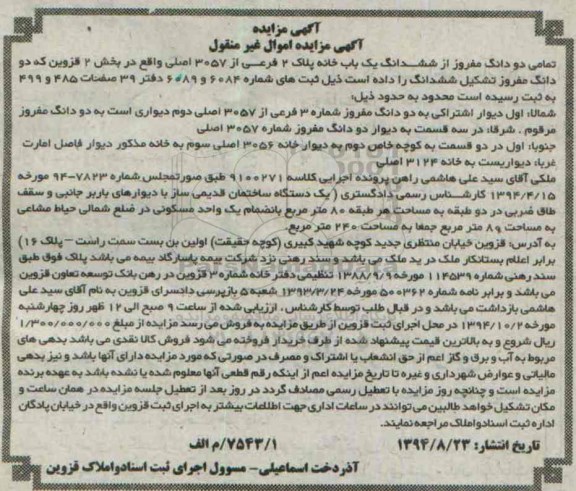 آگهی مزایده
آگهی مزایده اموال غیر منقول
تمامی دو دانگ مفروز از ششدانگ یک باب خانه پلاک ۲ فرعی از ۳۰۵۷ اصلی واقع در بخش ۲ قزوین که دو
دانگ مفروز تشکیل ششدانگ را داده است ذیل ثبت های شماره ۶۰۸۴ و ۶۰۸۹ دفتر ۳۹ صفحات ۴۸۵ و ۴۹۹
به ثبت رسیده است محدود به حدود ذیل:
شمالا: اول دیوار اشتراکی به دو دانگ مفروز شماره ۳ فرعی از ۳۰۵۷ اصلی دوم دیواری است به دو دانگ مفروز
مرقوم . شرقا: در سه قسمت به دیوار دو دانگ مفروز شماره ۳۰۵۷ اصلی
جنوبا: اول در دو قسمت به کوچه خاص دوم به دیوار خانه ۳۰۵۶ اصلی سوم به خانه مذکور دیوار فاصل امارت
غربا: دیواریست به خانه ۳۱۲۴ اصلی
ملکی آقای سید علی هاشمی راهن پرونده اجرایی کلاسه ۹۱۰۰۲۷۱ طبق صورتمجلس شماره ۷۸۲۳-۹۴ مورخه
۱۳۹۴/۴/۱۵ کارشناس رسمی دادگستری ( یک دستگاه ساختمان قدیمی ساز با دیوارهای باربر جانبی و سقف
طاق ضربی در دو طبقه به مساحت هر طبقه ۸۰ متر مربع بانضمام یک واحد مسکونی در ضلع شمالی حیاط مشاعی
به مساحت ۸۰ متر مربع جمعا به مساحت ۲۴۰ متر مربع.
به آدرس: قزوین خیابان منتظری جدید کوچه شهید کبیری (کوچه حقیقت) اولین بن بست سمت راست – پلاک ۱۶)
برابر اعلام بستانکار ملک در ید ملک می باشد و سند رهنی نزد شرکت بیمه پاسارگاد بیمه می باشد پلاک فوق طبق
سند رهنی شماره ۱۱۴۵۳۹ مورخه ۱۳۸۸/۹/۹ تنظیمی دفتر خانه شماره ۳ قزوین در رهن بانک توسعه تعاون قزوین
می باشد و برابر نامه شماره ۵۰۰۳۶۲ مورخه ۱۳۹۳/۳/۲۴ شعبه ۵ بازپرسی دادسرای قزوین به نام آقای سید علی
هاشمی بازداشت می باشد و در قبال طلب توسط کارشناس ، ارزیابی شده از ساعت ۹ صبح الی ۱۲ ظهر روز چهارشنبه
مورخه ۱۳۹۴/۱۰/۲ در محل اجرای ثبت قزوین از طریق مزایده به فروش می رسد مزایده از مبلغ ۱/۳۰۰/۰۰۰/۰۰۰
ریال شروع و به بالاترین قیمت پیشنهاد شده از طرف خریدار فروخته می شود فروش کالا نقدی می باشد بدهی های
مربوط به آب و برق و گاز اعم از حق انشعاب یا اشتراک و مصرف در صورتی که مورد مزایده دارای آنها باشد و نیز بدهی
مالیاتی و عوارض شهرداری و غیره تا تاریخ مزایده اعم از اینکه رقم قطعی آنها معلوم شده یا نشده باشد به عهده برنده
مزایده است و چنانچه روز مزایده با تعطیل رسمی مصادف گردد در روز بعد از تعطیل جلسه مزایده در همان ساعت و
مکان تشکیل خواهد طالبین می توانند در ساعات اداری جهت اطلاعات بیشتر به اجرای ثبت قزوین واقع در خیابان پادگان
اداره ثبت اسناد و املاک مراجعه نمایند.
تاریخ انتشار: ۱۳۹۴/۸/۲۳ ۷۵۴۳/۱/م الف
آذردخت اسماعیلی- مسوول اجرای ثبت اسناد و املاک قزوین